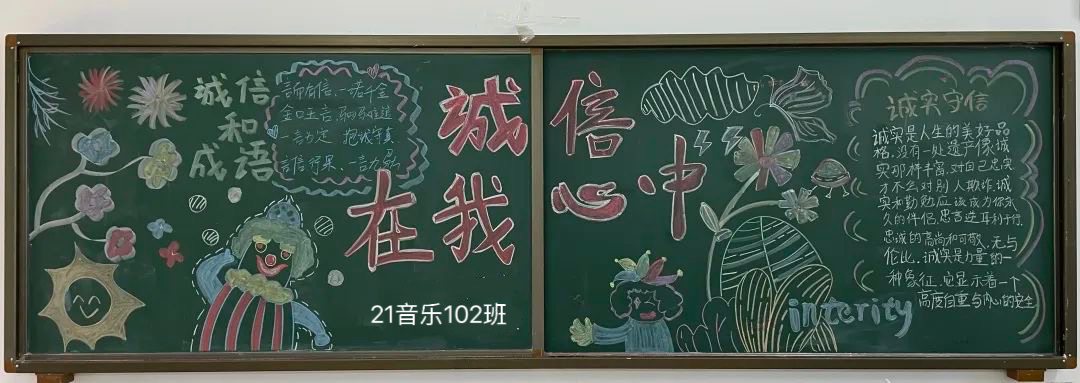 诚信
和
成语
言而有信、一诺千金
金口玉言、驷马难追
一言为定 抱诚守真
言信行果、一言九鼎
诚信
在我心中
21音乐102班
诚实守信
诚实是人生的美好品
格,没有一处遗产像诚
实那样丰富,对自己忠实
才不会对别人欺诈,诚
实和勤勉应该成为你永
久的伴侣,忠言逆耳利于行,
忠诚的高尚和可敬,无与
伦比,诚实是力量的一
种象征,它显示着一个
高度自重与内心的安全
interity